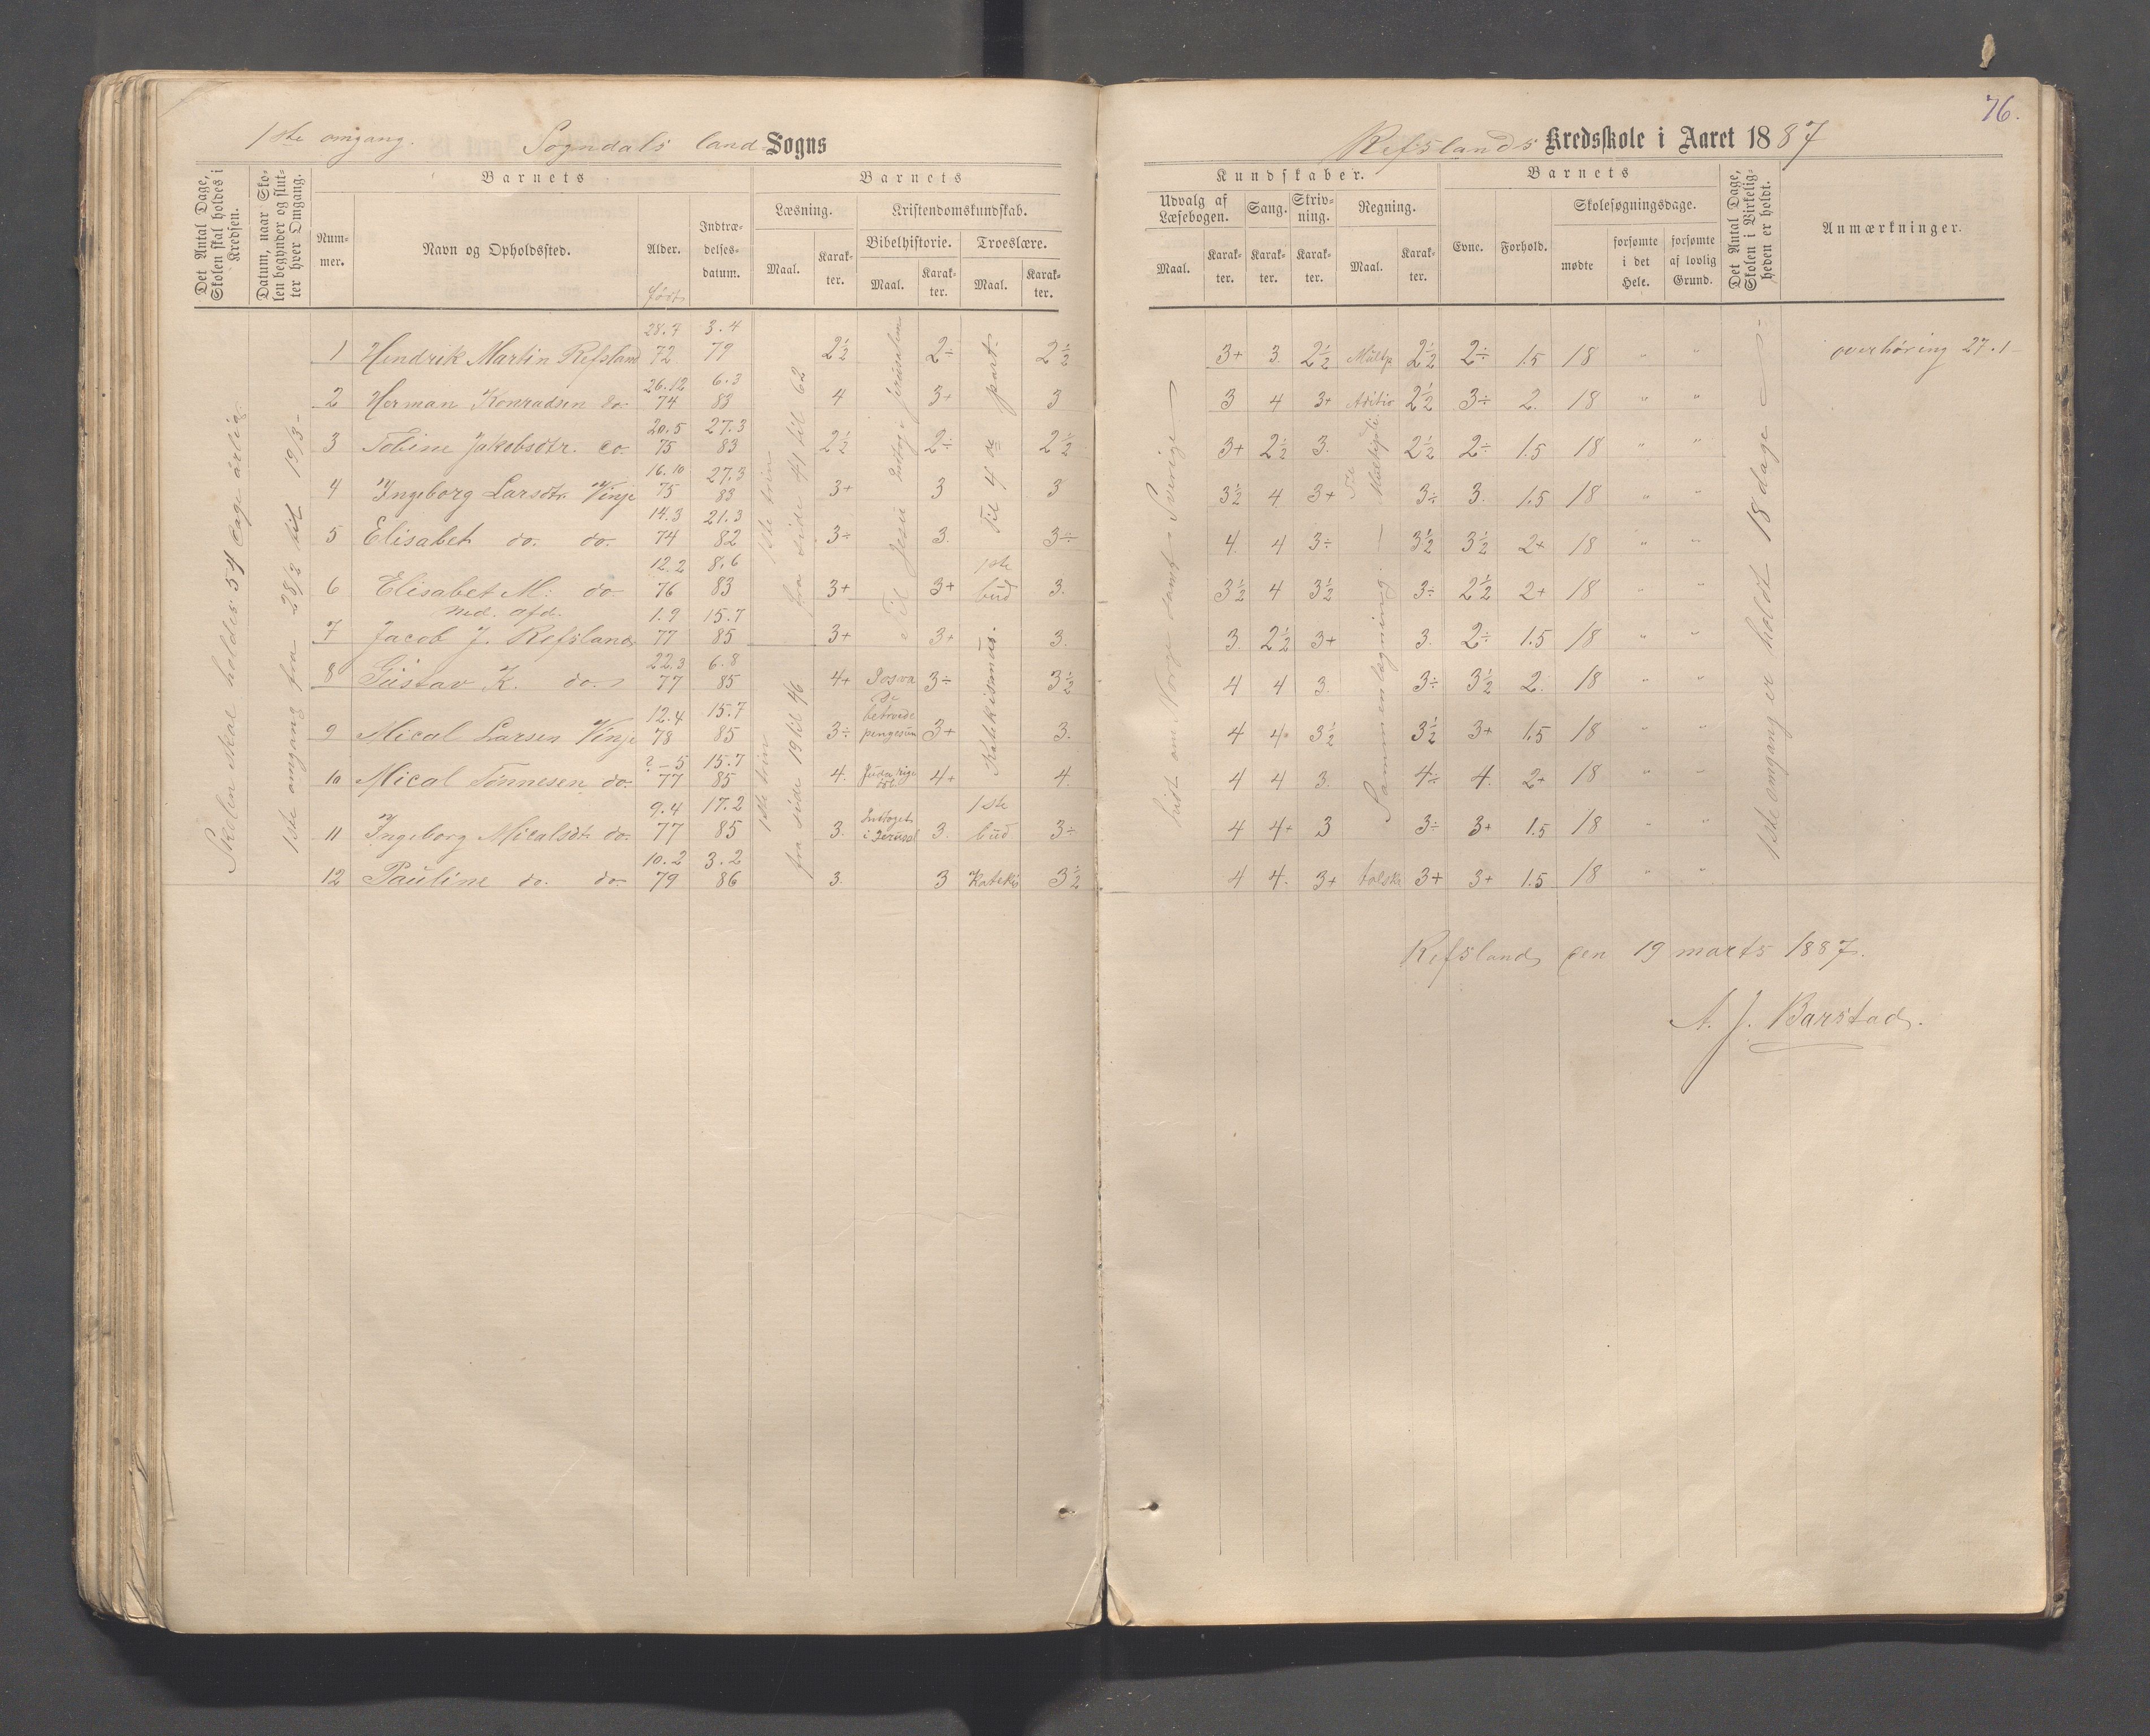 76.
1ste omgang. Sogndals land Sogns
Refslands Kredsskole i Aaret 1887
Det Antal Dage, Skolen skal holdes i Kredsen.
Datum, naar Skolen begynder og slutter hver Omgang.
Barnets
Nummer.
Navn og Opholdssted.
Alder. født
Indtrædelsesdatum.
Barnets
Læsning.
Maal.
Karakter.
Kristendomskundskab.
Bibelhistorie.
Maal.
Karakter.
Troeslære.
Maal.
Karakter.
Kundskaber.
Udvalg af Læsebogen.
Maal.
Karakter.
Sang.
Karakter.
Skrivning.
Karakter.
Regning.
Maal.
Karakter.
Barnets
Evne.
Forhold.
Skolesøgningsdage.
mødte
forsømte i det Hele.
forsømte af lovlig Grund.
Det Antal Dage, Skolen i Virkeligheden er holdt.
Anmærkninger.
Skolen skal holdes 54 dage årlig.
1ste omgang fra 28/2 til 19/3
1ste trin
fra side 41 til 62
1ste trin
fra side 19 til 46
Til Jesu indtog i jerusalem
Til 4 de part.
Katekismus.
lidt om Norge samt Sverige
Sammenlægning.
1ste omgang er holdt 18 dage
1 Hendrik Martin Refsland 28.7 72 3.4 79 2½ 2÷ 2½ 3+ 3. 2½ Multp 2½ 2÷ 1.5 18 " " overhøring 27.1
2 Herman Konradsen do. 26.12 74 6.3 83 4 3+ 3 3 4 3+ Aditio 2½ 3÷ 2. 18 " "
3 Tobine Jakobsdtr. do. 20.5 75 27.3 83 2½ 2÷ 2½ 3+ 2½ 3. 2½ 2÷ 1.5 18 " "
4 Ingeborg Larsdtr Vinje 16.10 75 27.3 83 3+ 3 3 3½ 4 3+ 3÷ 3. 1.5 18 " "
5 Elisabet do. do. 14.3 74 21.3 82 3÷ 3. 3÷ 4 4 3÷ 3½ 3½ 2+ 18 " "
6 Elisabet M: do 12.2 76 8.6 83 3+ 3+ 1ste bud 3. 3½ 4 3½ 3÷ 2½ 2+ 18 " "
ned. afd.
7 Jacob J. Refsland 1.9 77 15.7 85 3+ 3+ 3. 3. 2½ 3+ 3. 2÷ 1.5 18 " "
8 Gustav K. do. 22.3 77 6.8 85 4+ 3÷ 3½ 4 4 3. 3÷ 3½ 2. 18 " "
9 Mical Larsen Vinje 12.4 78 15.7 85 3÷ 3+ 3. 4 4 3½ 3½ 3+ 1.5 18 " "
10 Mical Tønnesen do. ?-5 77 15.7 85 4. 4+ 4. 4 4 3. 4÷ 4. 2+ 18 " "
11 Ingeborg Micalsdtr do. 9.4 77 17.2 85 3. Indtoget i Jerusal 3. 1ste bud 3÷ 4 4+ 3 3÷ 3+ 1.5 18 " "
12 Pauline do. do. 10.2 79 3.2 86 3. 3 Katekis 3½ 4 4. 3+ 3+ 3+ 1.5 18 " "
Refsland den 19 marts 1887.
A. J. Barstad.